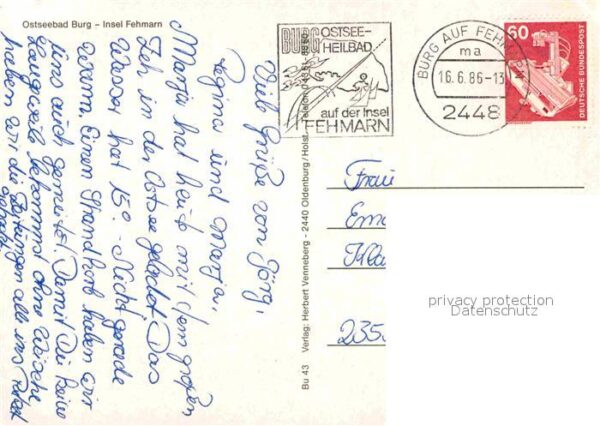 Ostseebad Burg – Insel Fehmarn
BURG OSTSEE-
HEILBAD
auf der Insel
FEHMARN
BURG AUF FEHMARN
ma
16.6.86-13
2448
60
DEUTSCHE BUNDESPOST
Viele Grüße von Jörg,
Regina und Marja,
Marja hat heute mit dem großen
Zeh in der Ostsee gebadet. Das
Wasser hat 15° - Nicht gerade
warm. Einen Strandkorb haben wir
uns auch gemietet. Damit Die keine
Langeweile bekommst ohne Wäsche
haben wir die
alle ins
Bu 43 Verlag: Herbert Venneberg - 2440 Oldenburg/Holst. Telefon
Frau
235
privacy protection
Datenschutz